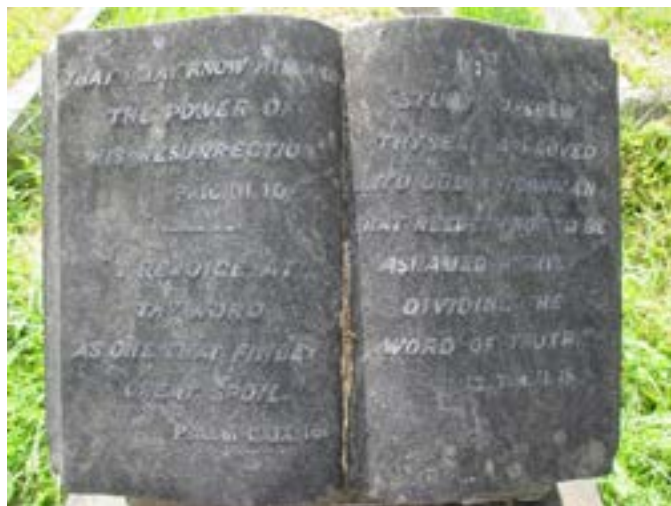 THAT I MAY KNOW HIM AND
THE POWER OF
HIS RESURRECTION
PHIL III. 10
I REJOICE AT
THY WORD
AS ONE THAT FINDETH
GREAT SPOIL.
PSALM
STUDY TO SHEW
THYSELF APPROVED
UNTO GOD A WORKMAN
THAT NEEDETH NOT TO BE
ASHAMED
DIVIDING THE
WORD OF TRUTH.